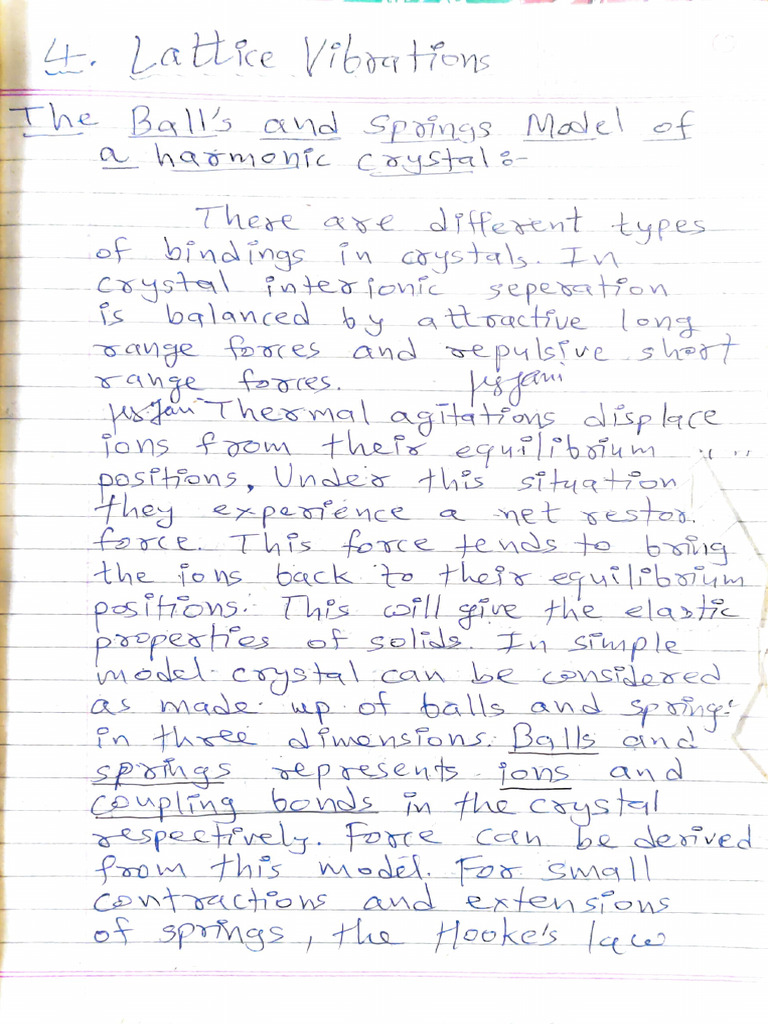 4. Lattice Vibrations
The Ball's and Springs Model of
a harmonic crystal:-
There are different types
of bindings in crystals. In
crystal interionic seperation
is balanced by attractive long
range forces and repulsive short
range forces.
Thermal agitations displace
ions from their equilibrium
positions, Under this situation
they experience a net restor.
force. This force tends to bring
the ions back to their equilibrium
positions. This will give the elastic
properties of solids. In simple
model crystal can be considered
as made up of balls and spring
in three dimensions. Balls and
springs represents ions and
coupling bonds in the crystal
respectively. Force can be derived
from this model. For small
contractions and extensions
of springs, the Hooke's law